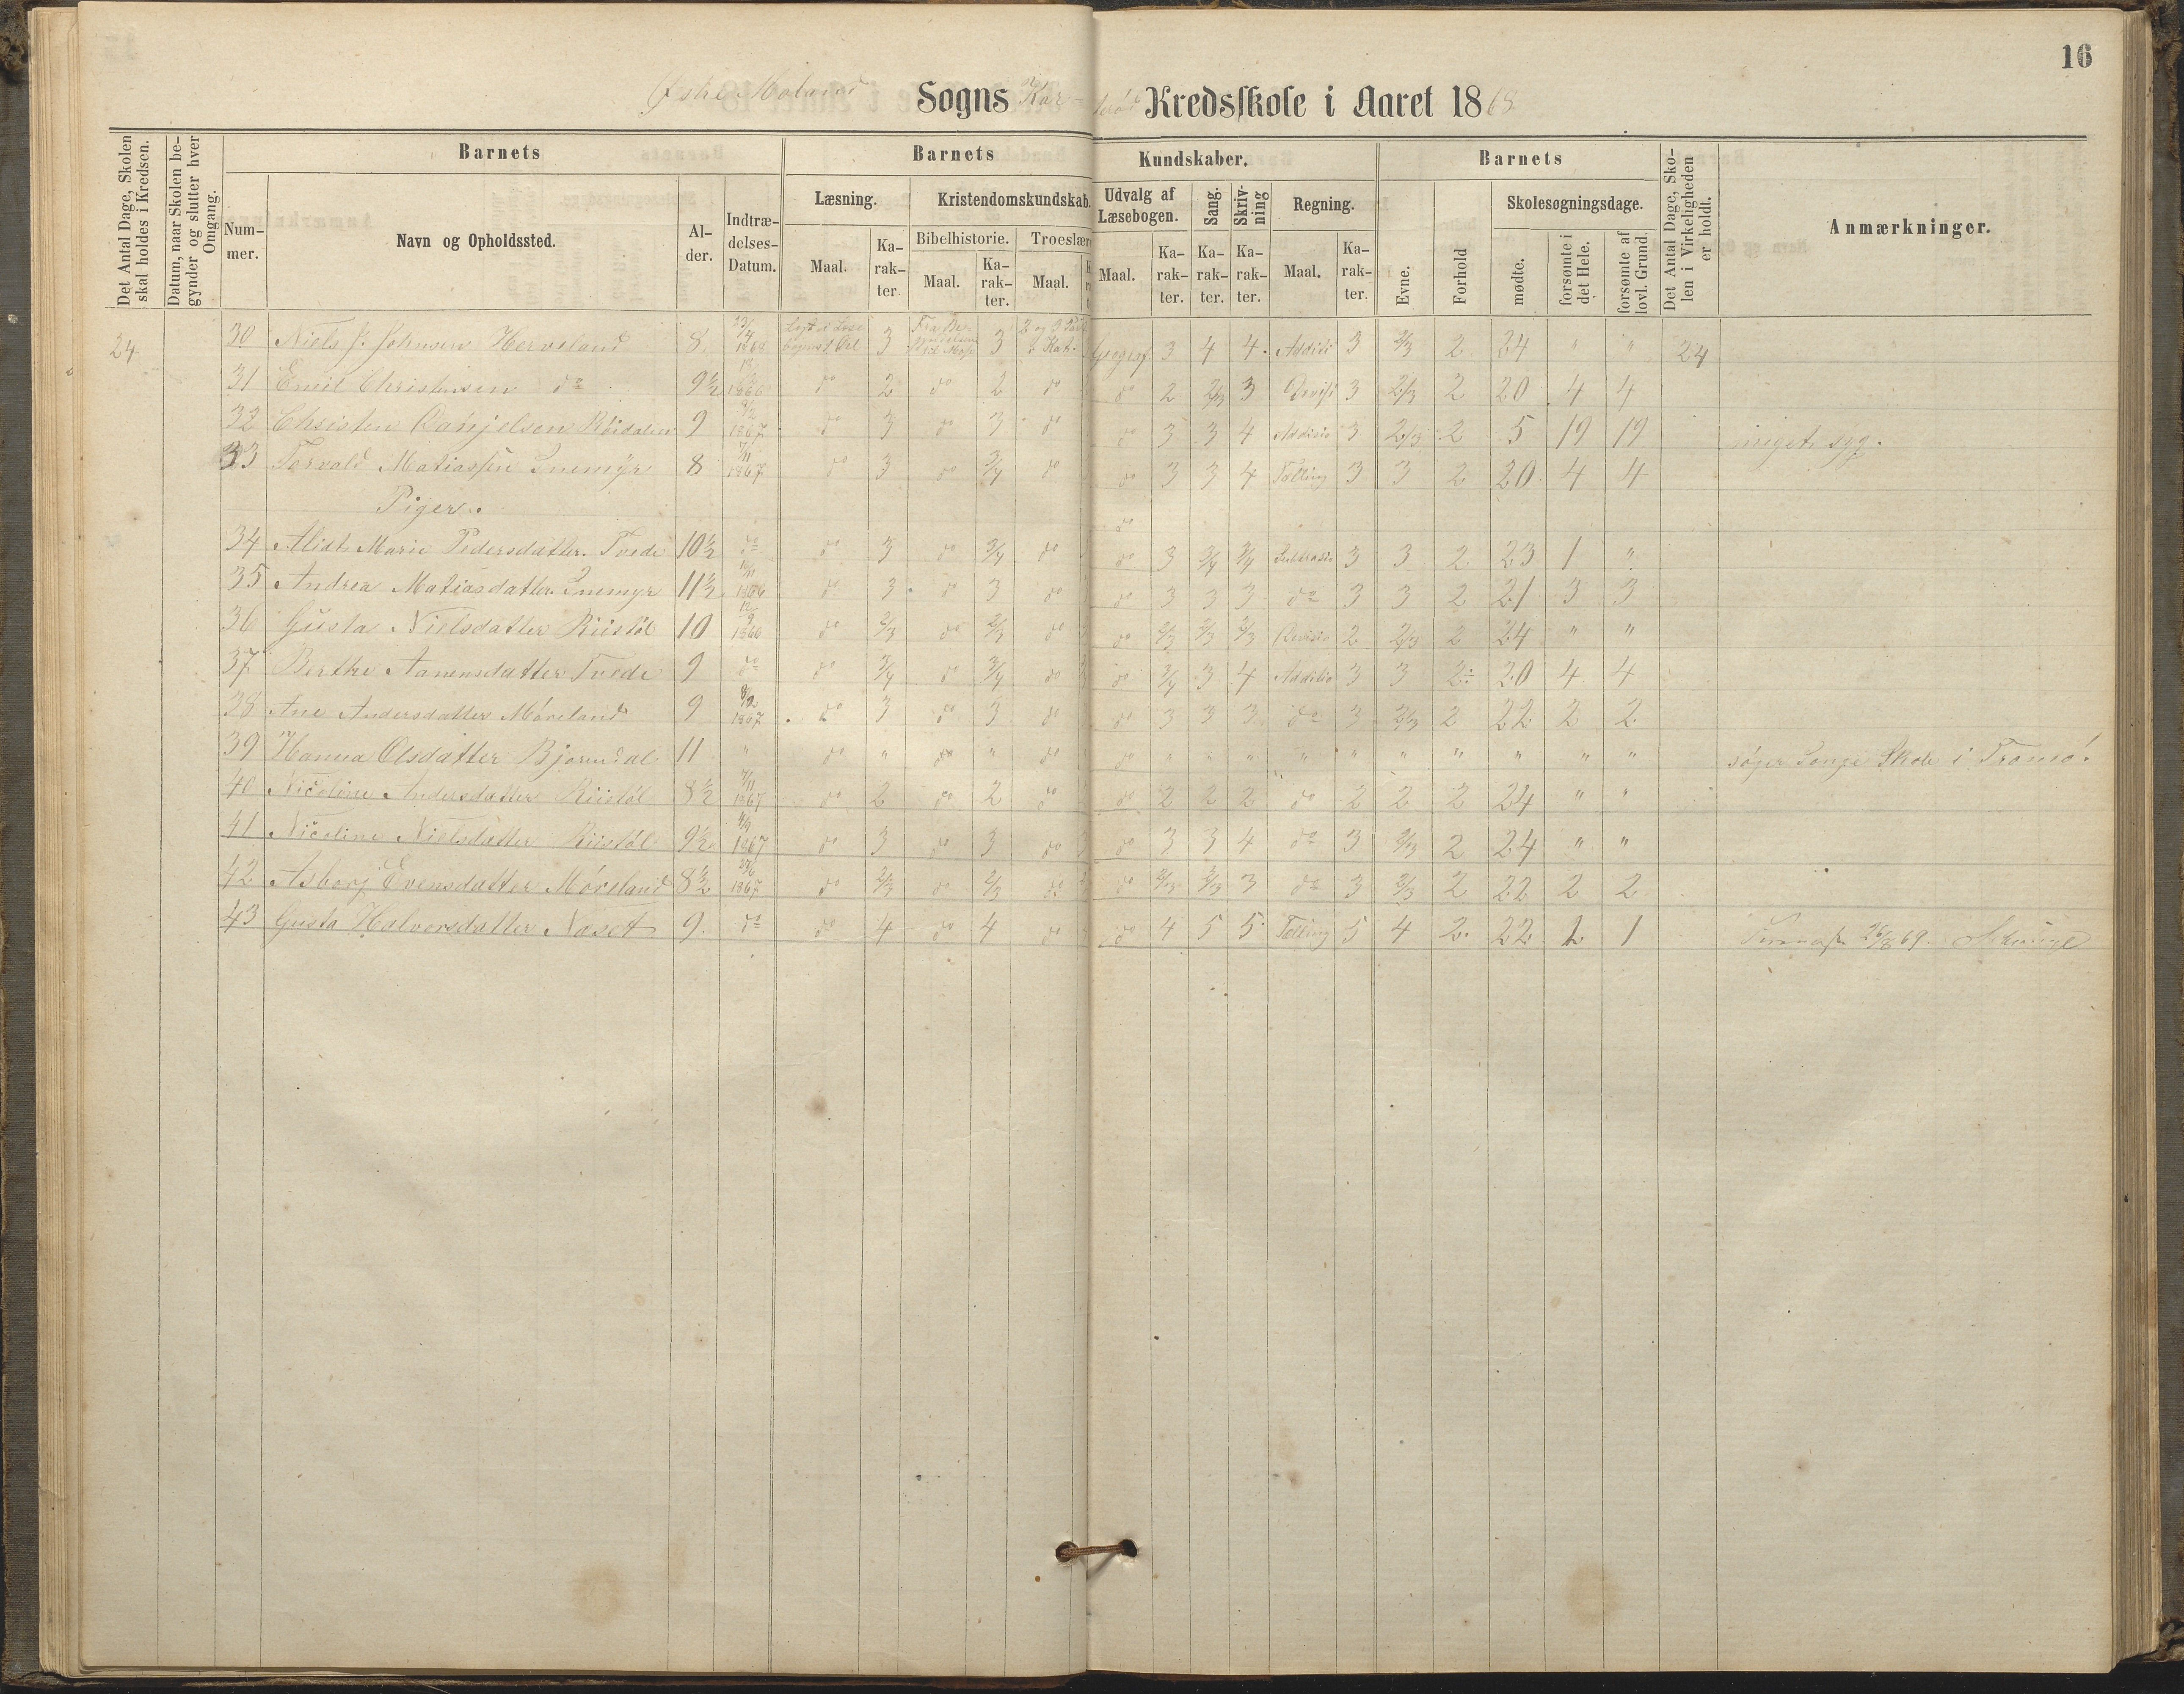 16
Østre Moland Sogns Kredsskole i Aaret 1868
Det Antal Dage, Skolen skal holdes i Kredsen.
Datum, naar Skolen begynder og slutter hver Omgang.
Barnets
Barnets
Kundskaber.
Barnets
Det Antal Dage, Skolen i Virkeligheden er holdt.
Anmærkninger.
Nummer.
Navn og Opholdssted.
Alder.
Indtrædelses-Datum.
Læsning.
Kristendomskundskab.
Udvalg af Læsebogen.
Sang.
Skrivning
Regning.
Evne.
Forhold
Skolesøgningsdage.
Bibelhistorie.
Troeslære
Maal.
Karakter.
Maal.
Karakter.
Maal.
Maal.
Karakter.
Karakter.
Karakter.
Maal.
Karakter.
mødte.
forsømte i det Hele.
forsømte af lovl. Grund.
24 30 Niels J. Johnsen Herveland 8 23/4 1868 3 3 Geograf. 3 4 4. Additi 3 2/3 2 24 " " 24
31 Emil Christensen do 9½ do 2 do 2 do do 2 2/3 3 3 2/3 2 20 4 4
32 Christen Danjelsen Röidalen 9 1867 do 3 do 3 do do 3 3 4 Addisio 3 2/3 2 5 19 19 meget syg.
33 Torvald Matiassen Innmyr 8 7/11 1867 do 3 do 3/4 do do 3 3 4 Tælling 3 3 2 20 4 4
Piger.
34 Alidt Marie Pedersdatter Tvede 10½ do do 3 do 3/4 do do 3 3/4 3/4 Subtrasio 3 3 2 23 1 "
35 Andrea Matiasdatter Innmyr 11½ do 3 do 3 do do 3 3 3 do 3 3 2 21 3 3
36 Gusta Nielsdatter Riistöl 10 do 2/3 do 2/3 do do 2/3 2/3 2/3 2 2/3 2 24 " "
37 Berthe Aanensdatter Tvede 9 do do 3/4 do 3/4 do do 3/4 3 4 Additio 3 3 2 20 4 4
38 Ane Andersdatter Möreland 9 1867 do 3 do 3 do do 3 3 3 do 3 2/3 2 22 2 2
39 Hanna Olsdatter Bjorndal 11 " do " do " do do " " " " " " " " " " söger Songe Skole i Tromö.
40 Nicoline Andersdatter Riistöl 8½ 7/11 1867 do 2 do 2 do do 2 2 2 do 2 2 2 24 " "
41 Nicoline Nielsdatter Riistöl 9½ 1867 do 3 do 3 do do 3 3 4 do 3 2/3 2 24 " "
42 Asborg Evensdatter Möreland 8½ 1867 do 2/3 do 2/3 do do 2/3 2/3 3 do 3 2/3 2 22 2 2
43 Gusta Halvorsdatter Naset 9. do do 4 do 4 do do 4 5 5 Tælling 5 4 2. 22 1 1 26/8 69.